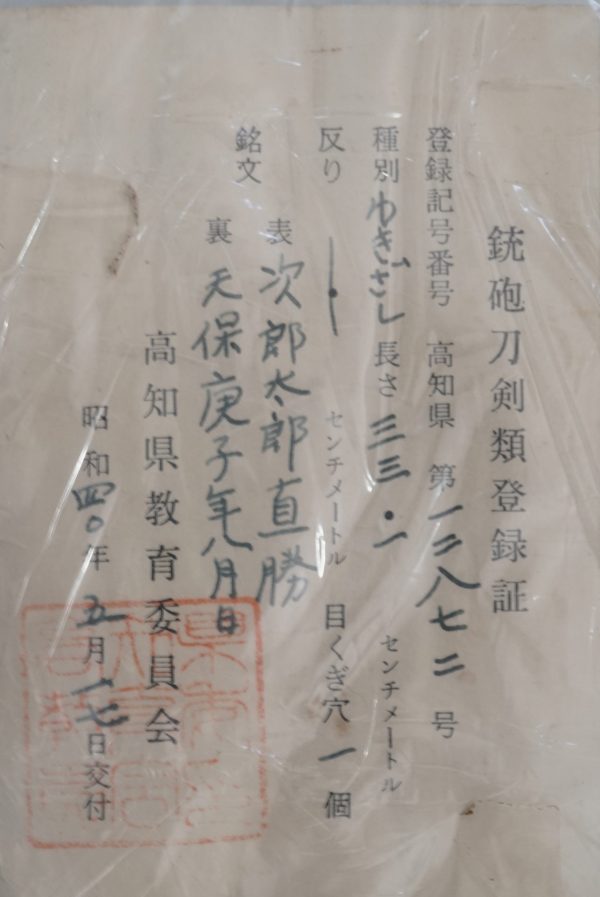 銃砲刀剣類登録証
登録記号番号 高知県 第一二八七二号
種別 わきざし 長さ 三三・一 センチメートル
反り センチメートル 目くぎ穴 一 個
銘文 表 次郎太郎直勝
裏 天保庚子年八月日
高知県教育委員会
昭和四〇年五月一七日交付